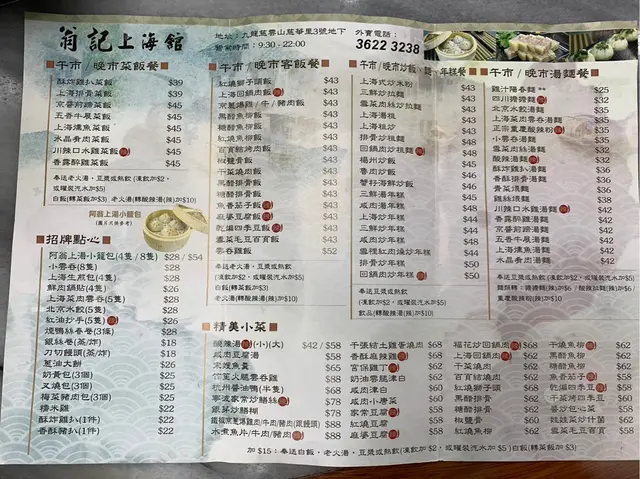 翁記上海館
地址：九龍慈雲山慈華里3號地下
營業時間：9:30 - 22:00
外賣電話：
3622 3238
午市 / 晚市菜飯餐
酥炸雞扒菜飯 $39
上海排骨菜飯 $39
京醬蹄菜飯 $45
五香牛展菜飯 $45
上海燻魚菜飯 $45
水晶肴肉菜飯 $45
川辣口水雞菜飯 $45
香露醉雞菜飯 $45
奉送老火湯，豆漿或熱飲 (凍飲加$2，
或罐裝汽水加$5)
白飯(轉菜飯加$3) 老火湯(轉酸辣湯(辣)加$10)
阿翁上湯小籠包
(圖片只供參考)
招牌點心
阿翁上湯小籠包(4隻 / 8隻) $28 / $54
小雲吞(8隻) $28
上海生煎包(4隻) $28
鮮肉鍋貼(4隻) $26
上海菜肉雲吞(5隻) $28
北京水餃(5隻) $28
紅油抄手(5隻) $26
煙鴨絲春卷(3條) $28
銀絲卷(蒸/炸) $18
刀切饅頭(蒸/炸) $18
蔥油大餅 $26
奶黃包(3個) $25
叉燒包(3個) $25
梅菜豬肉包(3個) $25
糯米雞 $22
酥炸雞扒(1件) $22
香酥豬扒(1件) $22
午市 / 晚市客飯餐
紅燒獅子頭飯 $43
上海回鍋肉飯 $43
京蔥爆雞 / 牛 / 豬肉飯 $43
黑醋魚柳飯 $43
糖醋魚柳飯 $43
紅燒魚柳飯 $43
百頁結燒肉飯 $43
椒鹽骨飯 $43
干菜燒肉飯 $43
黑醋排骨飯 $43
糖醋排骨飯 $43
魚香茄子飯 $43
麻婆豆腐飯 $43
乾煸四季豆飯 $43
雪菜毛豆百頁飯 $43
雲吞雞飯 $52
奉送老火湯，豆漿或熱飲
(凍飲加$2，或罐裝汽水加$5)
白飯(轉菜飯加$3)
老火湯(轉酸辣湯(辣)加$10)
午市 / 晚市炒飯 年糕餐
上海式炒米粉 $43
三鮮炒拉麵 $43
雪菜肉絲炒拉麵 $43
上海湯粗 $43
上海粗炒 $43
排骨炒粗麵 $48
回鍋肉炒粗麵 $48
楊州炒飯 $43
魯肉炒飯 $43
蟹籽海鮮炒飯 $43
咸肉湯年糕 $43
三鮮湯年糕 $43
上海炒年糕 $44
三鮮炒年糕 $44
咸肉炒年糕 $44
雪裡紅肉燥炒年糕 $44
排骨炒年糕 $50
回鍋肉炒年糕 $50
奉送豆漿或熱飲
(凍飲加$2，或罐裝汽水加$5)
飲品(轉酸辣湯(辣)加$10)
午市 / 晚市湯麵餐
雞汁陽春麵 $25
四川擔擔麵 $32
北京水餃湯麵 $35
上海菜肉雲吞湯麵 $35
正宗重慶酸辣粉 $35
小雲吞湯麵 $35
雪菜肉絲湯麵 $35
酸辣湯麵 $35
酥炸雞扒湯麵 $36
香酥排骨湯麵 $36
雞絲湯麵 $38
川辣口水雞湯麵 $42
香露醉雞湯麵 $42
五香牛展湯麵 $42
上海燻魚湯麵 $42
水晶肴肉湯麵 $42
奉送豆漿或熱飲(凍飲加$2，或罐裝汽水加$5)
精美小菜
酸辣湯(小)(大) $42 / $58
咸肉豆腐湯 $58
宋嫂魚羹 $65
杭州醬油鴨(半隻) $68
寧波家常炒鱔絲 $78
銀芽炒鱔糊 $78
$88
水煮魚片/牛肉/豬肉 $88
千張結土雞香燒肉 $68
香酥麻辣雞 $68
宮保雞丁 $62
奶油雲腿津白 $62
咸肉津白 $60
咸肉小唐菜 $60
家常豆腐 $58
紅燒豆腐 $58
麻婆豆腐 $58
福花炒回鍋肉 $68
上海回鍋肉 $62
干菜燒肉 $62
百頁結燒肉 $62
紅燒獅子頭 $62
黑醋排骨 $62
糖醋排骨 $62
椒鹽骨 $60
紅燒魚柳 $62
干燒魚柳 $62
黑醋魚柳 $62
糖醋魚柳 $62
魚香茄子 $58
乾煸四季豆 $58
干菜烤四季豆 $60
醬炒包心菜 $58
娃娃菜炒什菌 $62
雪菜毛豆百頁 $58
加 $15：奉送白飯，老火湯，豆漿或熱飲(凍飲加$2，或罐裝汽水加 $5 )白飯(轉菜飯加 $3)